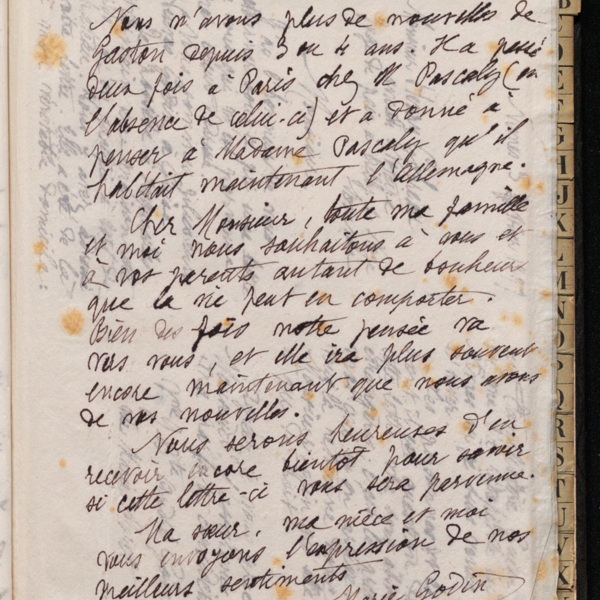 Nous n'avons plus de nouvelles de
Gaston depuis 3 ou 4 ans. Il a passé
deux fois à Paris chez M Pascaly (en
l'absence de celui-ci) et a donné à
penser à Madame Pascaly qu'il
habitait maintenant l'Allemagne.
Cher Monsieur, toute ma famille
et moi nous souhaitons à vous et
à vos parents autant de bonheur
que la vie peut en comporter.
Bien des fois notre pensée va
vers vous, et elle ira plus souvent
encore maintenant que nous avons
de vos nouvelles.
Nous serons heureuses d'en
recevoir encore bientôt pour savoir
si cette lettre-ci vous sera parvenue.
Ma sœur, ma nièce et moi
vous envoyons l'expression de nos
meilleurs sentiments
Marie Godin
B
D
E
F
G
H
J
K
L
M
N
O
P
Q
R
S
T
U
V
X